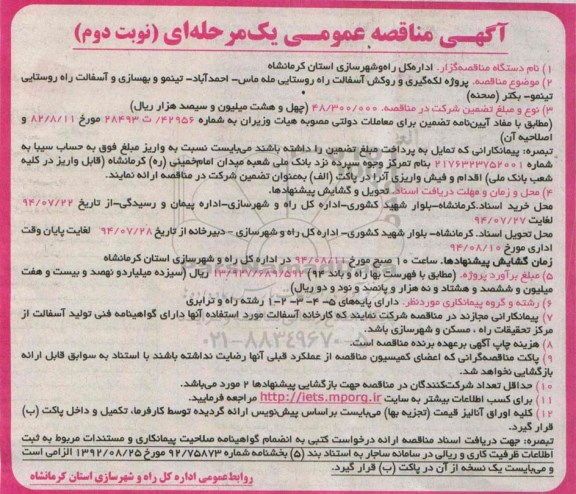 آگهـی مناقصه عمومـی یک‌مرحله‌ای (نوبت دوم)
۱) نام دستگاه مناقصه‌گزار. اداره‌کل راه‌وشهرسازی استان کرمانشاه
۲) موضوع مناقصه. پروژه لکه‌گیری و روکش آسفالت راه روستایی مله ماس- احمدآباد- تینمو و بهسازی و آسفالت راه روستایی
تینمو- بکتر (صحنه)
۳) نوع و مبلغ تضمین شرکت در مناقصه. ۴۸/۳۰۰/۰۰۰ (چهل و هشت میلیون و سیصد هزار ریال)
(مطابق با مفاد آیین‌نامه تضمین برای معاملات دولتی مصوبه هیات وزیران به شماره ۴۲۹۵۶/ ت ۲۸۴۹۳ مورخ ۸۲/۸/۱۱ و
اصلاحیه آن)
تبصره: پیمانکارانی که تمایل به پرداخت مبلغ تضمین را داشته باشند می‌بایست نسبت به واریز مبلغ فوق به حساب سیبا به
شماره ۲۱۷۶۳۲۳۷۵۲۰۰۱ بنام تمرکز وجوه سپرده نزد بانک ملی شعبه میدان امام‌خمینی (ره) کرمانشاه (قابل واریز در کلیه
شعب بانک ملی) اقدام و فیش واریزی آنرا در پاکت (الف) به‌عنوان تضمین شرکت در مناقصه ارائه نمایند.
۴) محل و زمان و مهلت دریافت اسناد. تحویل و گشایش پیشنهادها.
محل خرید اسناد.کرمانشاه-بلوار شهید کشوری-اداره کل راه و شهرسازی-اداره پیمان و رسیدگی-از تاریخ ۹۴/۰۷/۲۲
لغایت ۹۴/۰۷/۲۷
محل تحویل اسناد. کرمانشاه- بلوار شهید کشوری- اداره کل راه و شهرسازی - دبیرخانه از تاریخ ۹۴/۰۷/۲۸ لغایت پایان وقت
اداری مورخ ۹۴/۰۸/۱۰
زمان گشایش پیشنهادها. ساعت ۱۰ صبح مورخ ۹۴/۰۸/۱۱ در اداره کل راه و شهرسازی استان کرمانشاه
۵) مبلغ برآورد پروژه. (مطابق با فهرست بها راه و باند ۹۴) ۱۳/۹۲۷/۶۸۹/۵۹۲ ریال (سیزده میلیاردو نهصد و بیست و هفت
میلیون و ششصد و هشتاد و نه هزار و پانصد و نود و دو ریال)
۶) رشته و گروه پیمانکاری موردنظر. دارای پایه‌های ۵- ۴- ۳- ۲-۱ رشته راه و ترابری
۷) پیمانکارانی مجازند در مناقصه شرکت نمایند که کارخانه آسفالت مورد استفاده آنها دارای گواهینامه فنی تولید آسفالت از
مرکز تحقیقات راه ، مسکن و شهرسازی باشد.
۸) هزینه چاپ آگهی برعهده برنده مناقصه است.
۹) پاکت مناقصه‌گرانی که اعضای کمیسیون مناقصه از عملکرد قبلی آنها رضایت نداشته باشند با استناد به سوابق قابل ارائه
بازگشایی نخواهد شد.
۱۰) حداقل تعداد شرکت‌کنندگان در مناقصه جهت بازگشایی پیشنهادها ۲ مورد می‌باشد.
۱۱) برای کسب اطلاعات بیشتر به سایت http://iets.mporg.ir مراجعه فرمایید.
۱۲) کلیه اوراق آنالیز قیمت (تجزیه بها) می‌بایست براساس پیش‌نویس ارائه گردیده توسط کارفرما، تکمیل و داخل پاکت (ب)
قرار گیرد.
تبصره: جهت دریافت اسناد مناقصه ارائه درخواست کتبی به انضمام گواهینامه صلاحیت پیمانکاری و مستندات مربوط به ثبت
اطلاعات ظرفیت کاری و ریالی در سامانه ساجار به استناد بند (۵) بخشنامه شماره ۹۲/۷۵۸۷۳ مورخ ۱۳۹۲/۰۸/۲۵ الزامی است
و می‌بایست یک نسخه از آن در پاکت (ب) قرار گیرد.
روابط‌عمومی اداره کل راه و شهرسازی استان کرمانشاه
۰۲۱-۸۸۳۴۹۶۷۰-۵